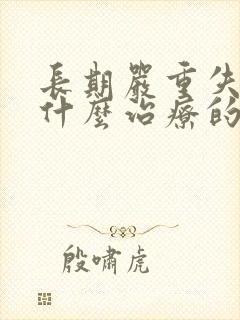 長期嚴重失
什麼治療的
殷嘯虎